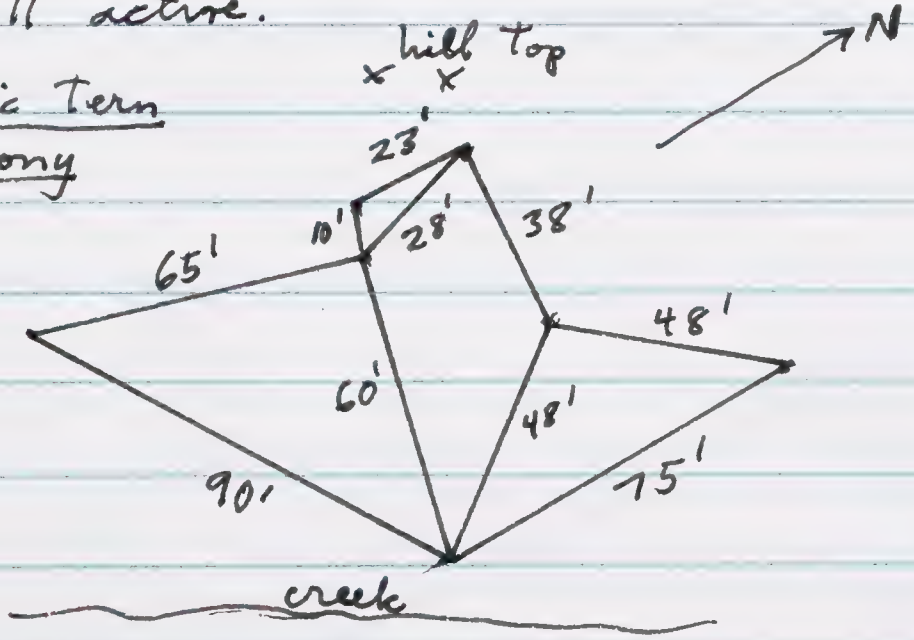 ll active.
hill Top
N
ic Tern
ony
x x
23'
10'
28'
38'
65'
48'
60'
48'
90'
75'
creek